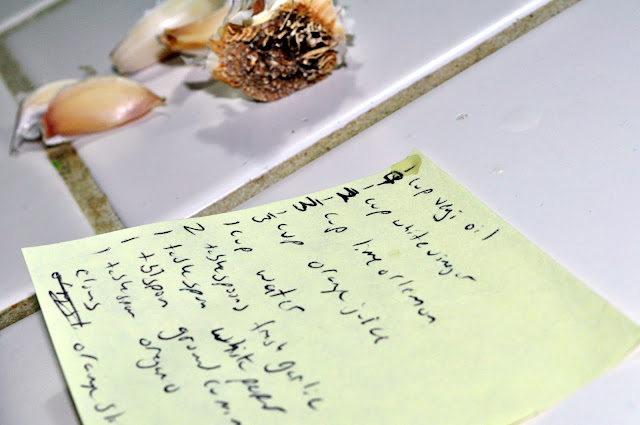 1 cup vegi oil
1/2 cup white vinegar
1/3 cup lime or lemon
1/3 cup orange juice
1 cup water
2 tablespoons fresh garlic
1 tablespoon white pepper
1 tablespoon ground cumin
1 tablespoon oregano
orange